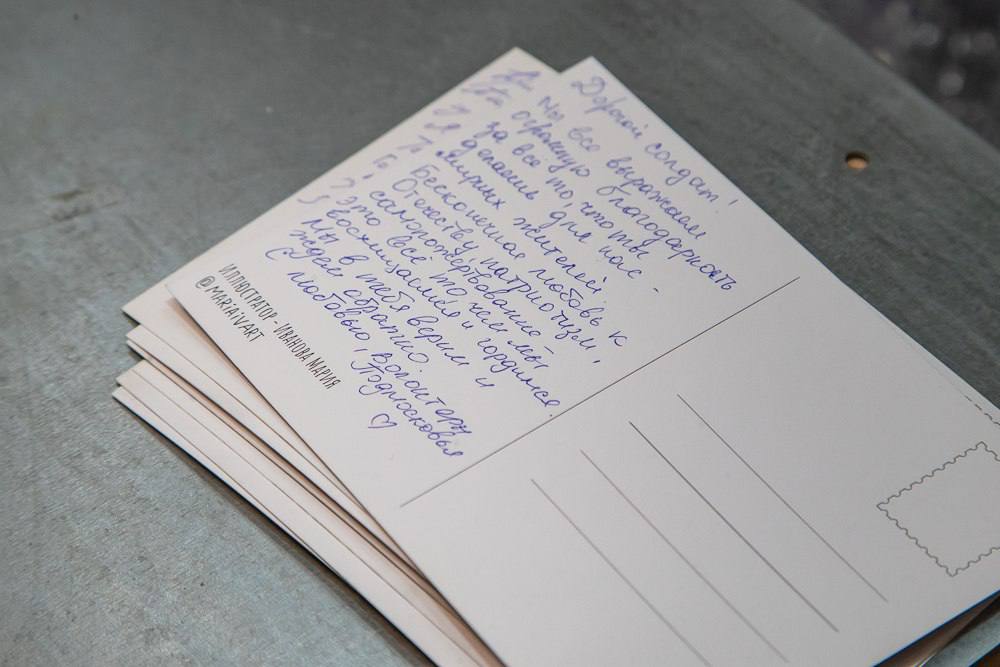 Дорогой солдат!
Мы все выражаем
огромную благодарность
за все то, что ты
делаешь для нас -
мирных жителей.
Бесконечная любовь к
Отечеству, патриотизм,
самопожертвование -
это всё то, чем мы
восхищаемся и гордимся.
Мы в тебя верим и
ждем обратно
С любовью, волонтеры
Подмосковья
♡
ИЛЛЮСТРАТОР - ИВАНОВА МАРИЯ
@MARIAIVART